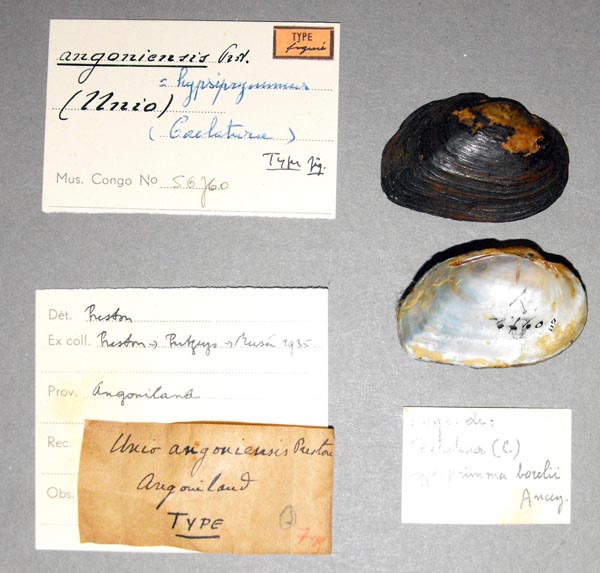 TYPE
figuré
angoniensis Prst.
= hypsiprymnus
(Unio)
(Caelatura)
Type fig.
Mus. Congo No 56760
Dét. Preston
Ex coll. Preston → Putzeys → Musée 1935.
Prov. Angoniland
Rec.
Obs.
Unio angoniensis Preston
Angoniland
TYPE
56760
syn. de:
Caelatura (C.)
hypsiprimna borelii
Ancey.